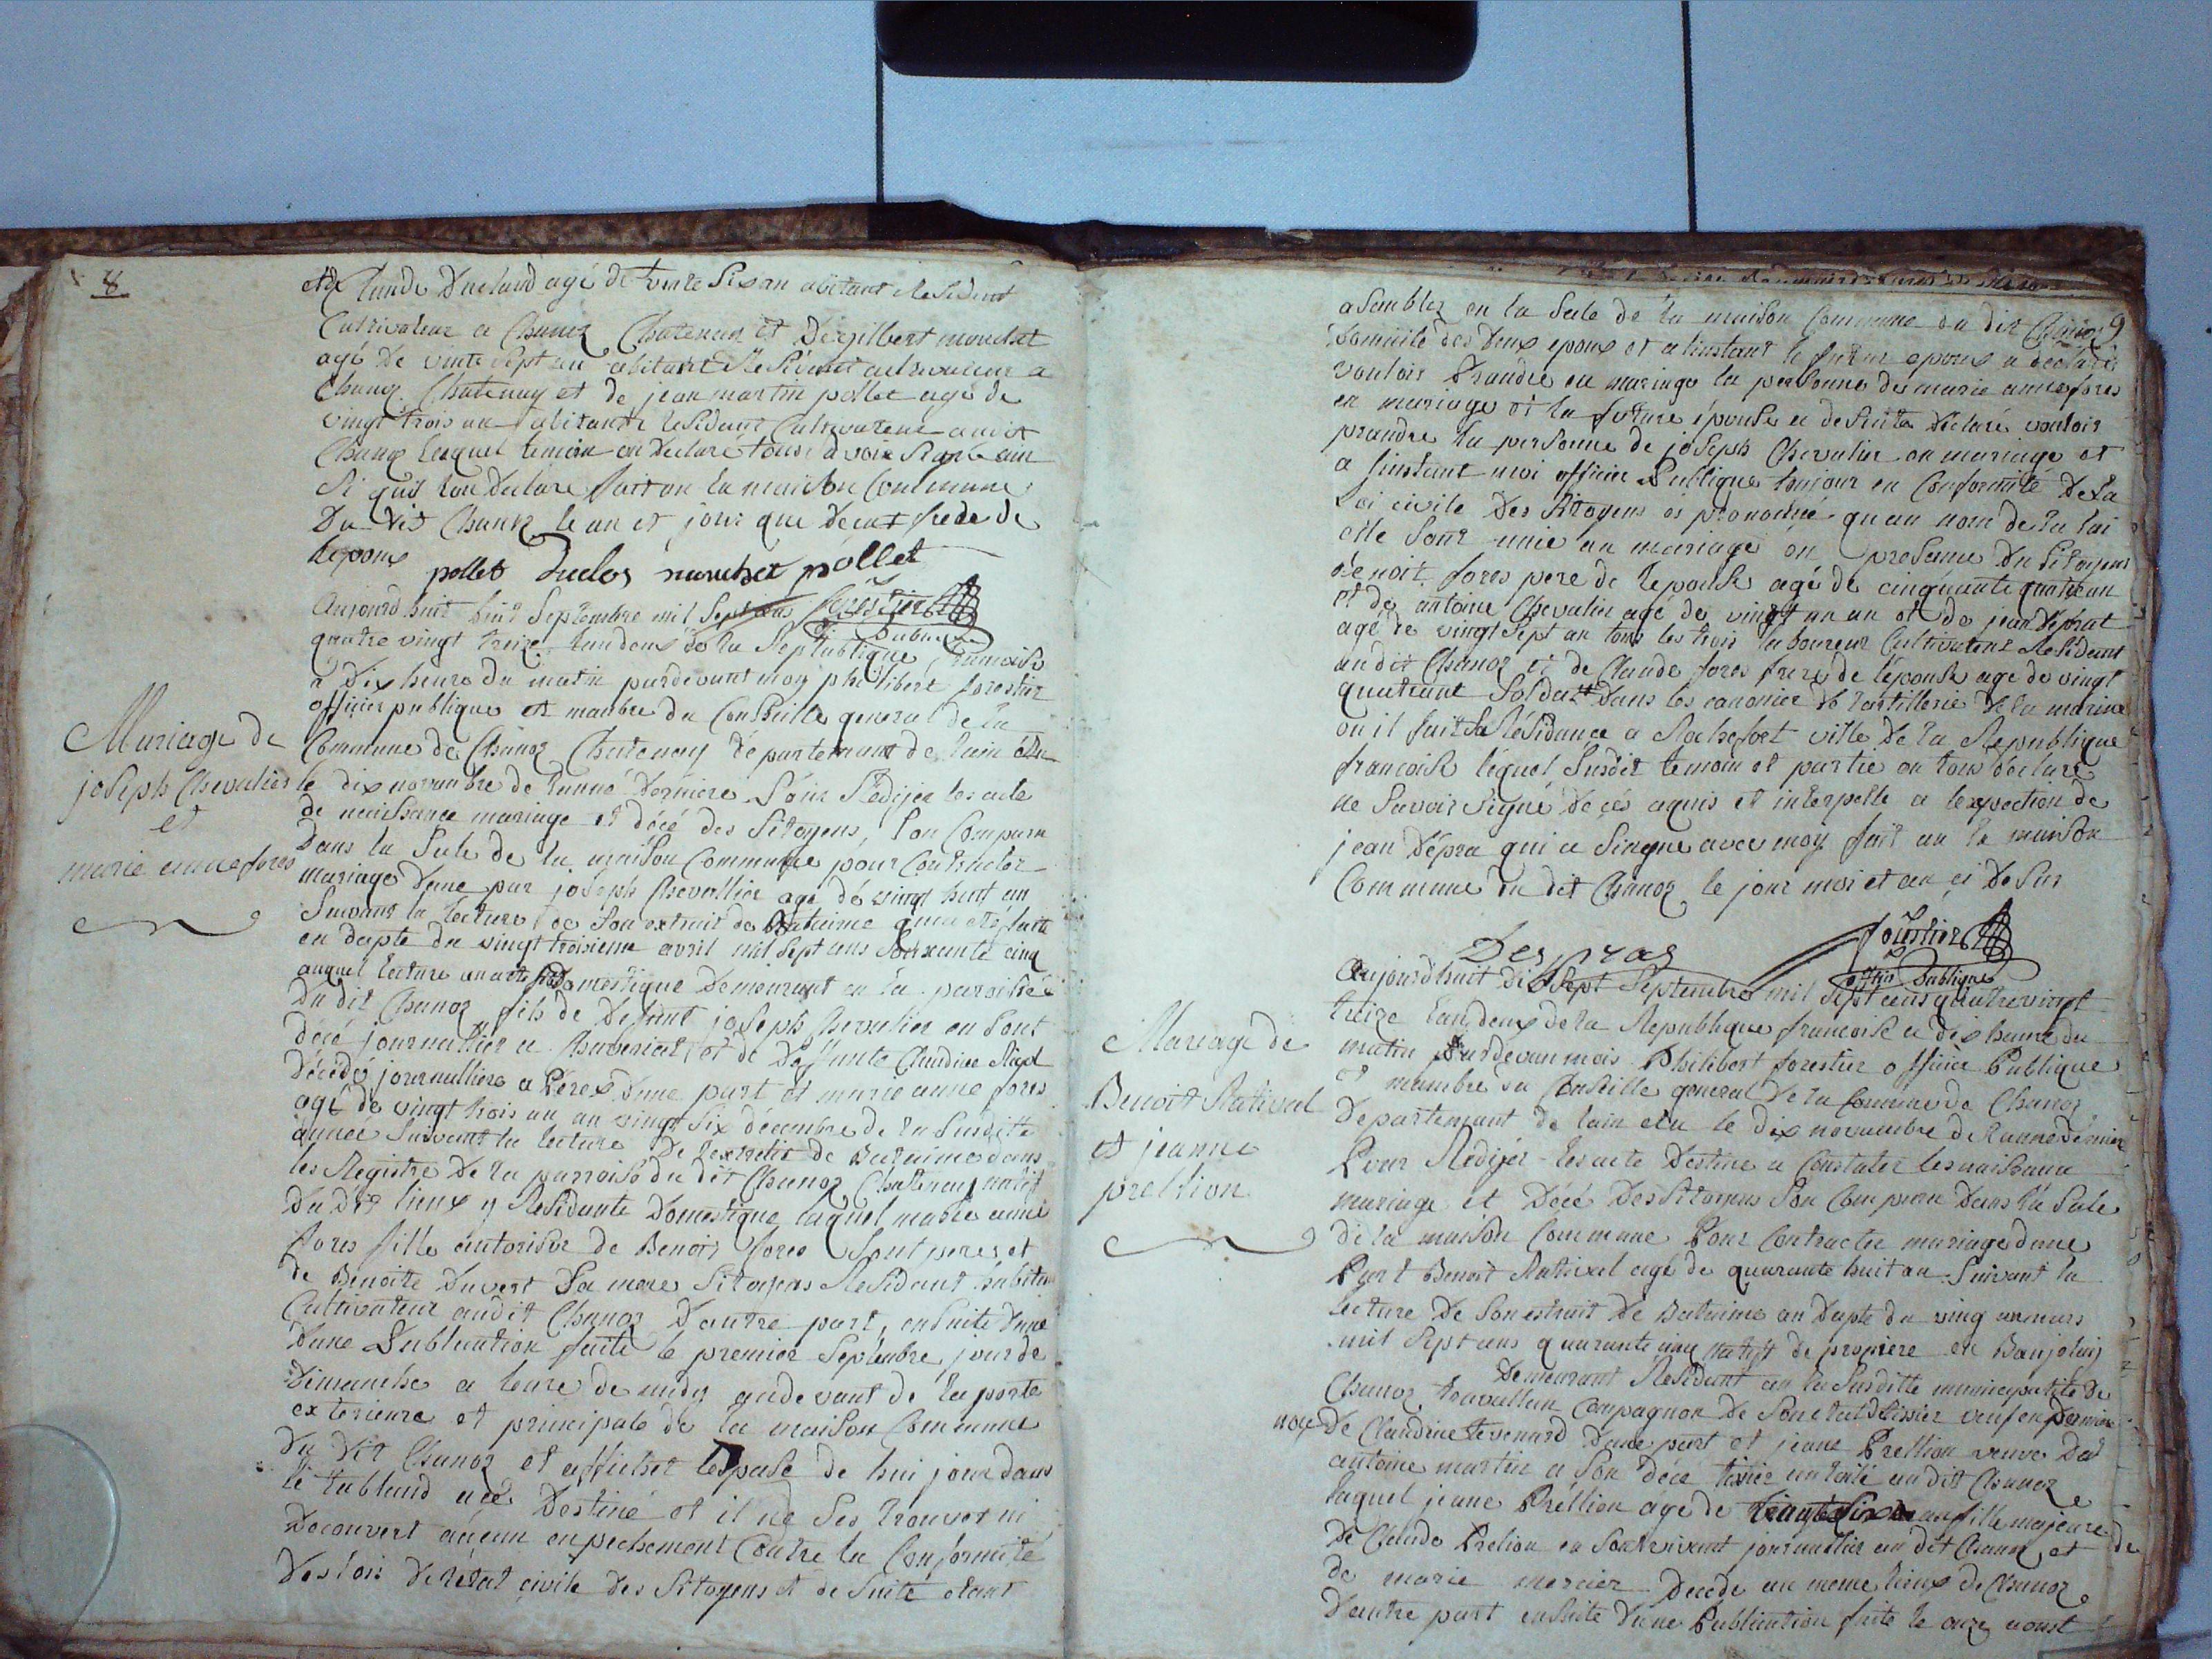 8
agé de trente six an abitant Residant
Cultivateur a Chanoz Chatenay et de gilbert mouchet
agé de vinte sept an abitant Residant cultivateur a
Chanoz Chatenay et de jean martin pollet agé de
vingt trois an abitant Residant Cultivateur audit
Chanoz lequel temoin on declaré tous
fait an la maison Commune
Du dit Chanoz le an et jour que
lepoux
pollet Duclos mouchet pollet
forestier
Aujourd huit huit Septembre mil Sept sans
publique
quatre vingt treize lan deux de la Republique francoise
a dix heure du matin pardevant moy philibert forestier
officier publique et manbre du Conseille general de la
Commune de Chanoz Chatenay departemant de lain élu
le dix novanbre de lanné derniere pour Rediger les acte
de naissance mariage et décé des Sitoyens, son Comparu
Dans la Sale de la maison Commune pour Contracter
mariage Dune par joseph Chevallier agé de vingt huit an
Suivant la lecture de Son extrait de Bataime
en dapte du vingt troisieme avril mil Sept sans Soixante cinq
Domestique Demeurant en la paroisse
Du dit Chanoz fils de Defunt joseph Chevalier en Sont
décé journallier a et de Deffunte Claudine
Décédé journalliere a Perex Dune part et marie anne fores
agé de vingt trois an au vingt Six décembre de la Susditte
année Suivant la lecture De lextrait de Bataime dans
les Registre De la parroise du dit Chanoz Chatenay natif
Du dit lieux y Residante Domestique laquel marie anne
fores fille autorisér de Benoit fores Sont pere et
de Benoite Duvert Sa mere Sitoyens Residant habitan
Cultivateur audit Chanoz Dautre part, ensuite Dune
Dune Publication faite le premier Septembre jour de
Dimanche a leure de midy audevant de la porte
exterieure et principale de la maison Commune
Du dit Chanoz et afficher lespase de hui jour dans
le tablaud a ce Destiné et il ne Ses trouver ni
Decouvert aucun enpechement Contre la Conformité
Des lois De létat civile Des Sitoyens et de Suite etant
Mariage de
joseph Chevalier
et
marie anne fores
9
asamblez en la Sale de la maison Commune du dit Chanoz
Domicile des deux epoux et a linstant le futur epoux a declaré
vouloir Prandre en mariage la personne de marie anne fores
en mariage et la future épouse a de suite Déclaré vouloir
prandre la personne de joseph Chevalier en mariage et
a linstant moi officier Publique toujour en Conformité De La
Loi civile Des Sitoyens es prononcé quau nom de la loi
elle Sont unie an mariage en presance Du Sitoyens
Benoit fores pere de lepouse agé de cinquante quatre an
et de antoine Chevalier agé de vingt un an et de jean Deprat
agé de vingt Sept an tous les trois laboureur Cultivateur Residant
audit Chanoz et de Claude fores frere de lépouse agé de vingt
quatre ant Soldat Dans les canonier de lartillerie De la marine
ou il fait Sa Residance a Rochefort ville De la Republique
francoise léquel Susdit temoin et partie on tous declaré
ne Savoir Signé De cés aquis et interpelle a lexpection de
jean Dépra qui a Singne avec moy fait an la maison
Commune du dit Chanoz le jour moi et an ci Desur
Despras
forestier
offici Publique
Aujourdhuit Dix Sept Septembre mil Sept cens quatrevingt
treize l'an deux de la Republique francoise a dix heure du
matin pardevan mois Philibert forestier officier Publique
et mambre du Conseille general De la Commune de Chanoz
Departemant de lain elu le dix novambre de lanné dernier
Pour Redigér les acte Destine a Constater les naissance
mariage et Décé Des Sitoyens Son Comparu Dans la Sale
de la maison Commune Pour Contracter mariage dune
Part Benoit Rativel agé de quarante huit an Suivant la
lecture De Son estrait De Bataime an Dapte du
mil Sept sans quarante cinq natif de propiere en Baujolais
Demeurant Residant an la Susditte municipalité de
Chanoz travallian Compagnon De Son etat tissier veuf en
nose De Claudine tevenard Dune part et jeane Prellion veuve De
antoine martin a Son Décé tissier an toile au dit Chanoz
laquel jeane Préllion agé de an fille majeure de
De Claude Prelion en Son vivant journallier au dit Chanoz et
de marie mercier Decede au meme lieux de Chanoz
Dautre part ensuite Dune Publication faite le onze aoust
Mariage de
Benoit Rativel
et jeanne
prellion